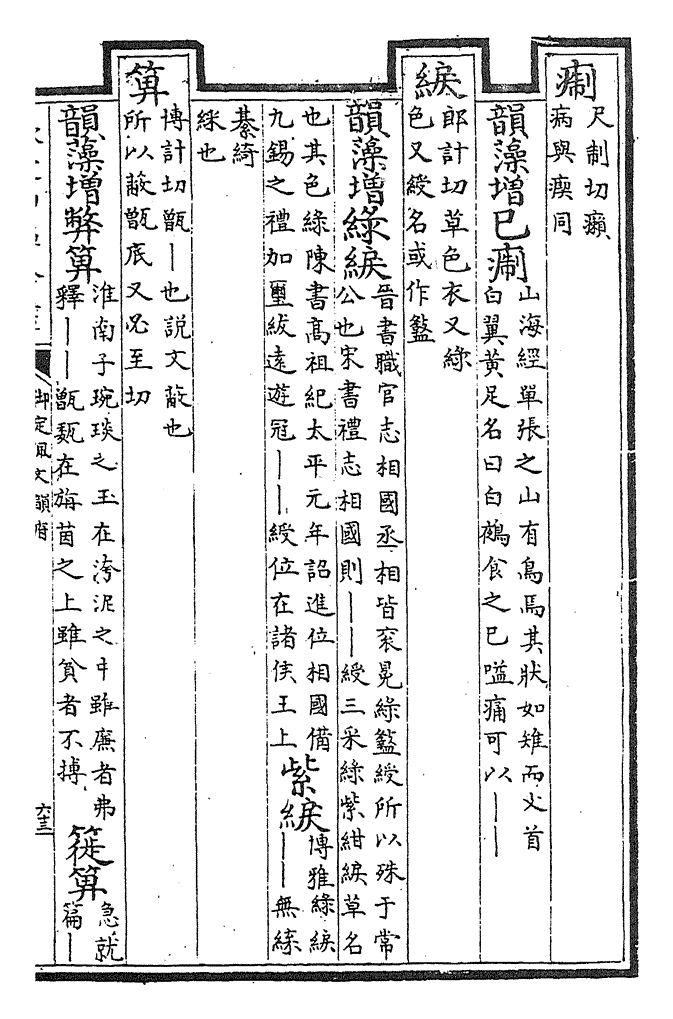 瘌
尺制切癩
病與瘈同
韻藻增已瘌
山海經單張之山有鳥焉其狀如雉而文首
白翼黃足名曰白鵺食之已嗌痛可以丨丨
綟
郎計切草色衣又綠
色又綬名或作盭
韻藻增綠綟
晉書職官志相國丞相皆衮冕綠盭綬所以殊于常
公也宋書禮志相國則丨丨綬三采綠紫紺綟草名
也其色綠陳書高祖紀太平元年詔進位相國備
九錫之禮加璽紱遠遊冠丨丨綬位在諸侯王上
紫綟
博雅綠綟
丨丨無縩
綦綺
綵也
箅
博計切甑丨也說文蔽也
所以蔽甑底又必至切
韻藻增弊箅
淮南子琬琰之玉在洿泥之中雖廉者弗
釋丨丨甑瓾在旃茵之上雖貧者不搏
簁箅
急就
篇丨
御定佩文韻府
六十三